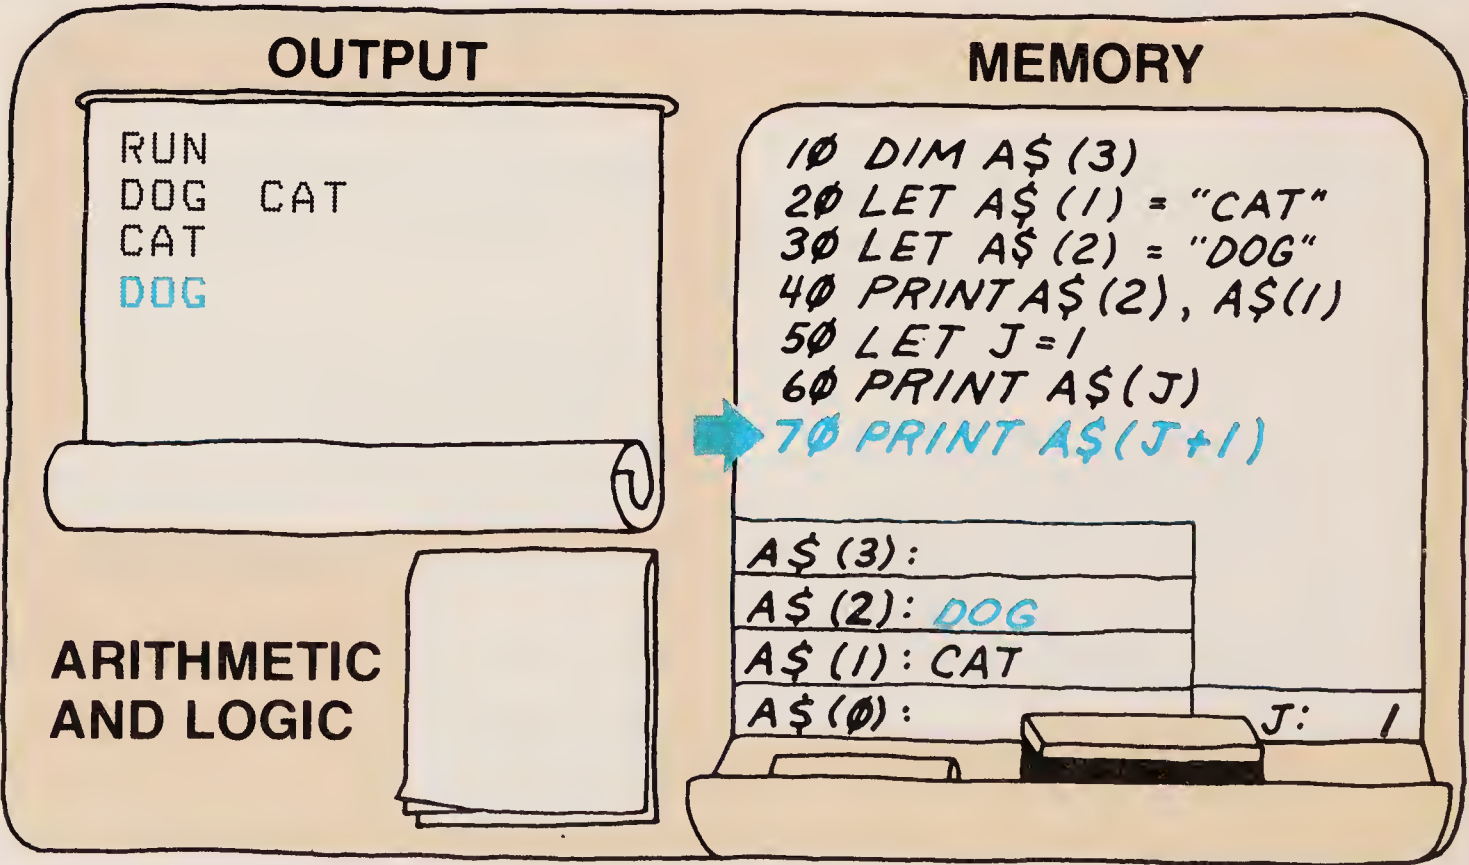 OUTPUT
RUN
DOG CAT
CAT
DOG
ARITHMETIC
AND LOGIC
MEMORY
1Ø DIM A$(3)
2Ø LET A$(1) = "CAT"
3Ø LET A$(2) = "DOG"
4Ø PRINT A$(2), A$(1)
5Ø LET J=1
6Ø PRINT A$(J)
7Ø PRINT A$(J+1)
A$(3):
A$(2): DOG
A$(1): CAT
A$(Ø):
J: 1